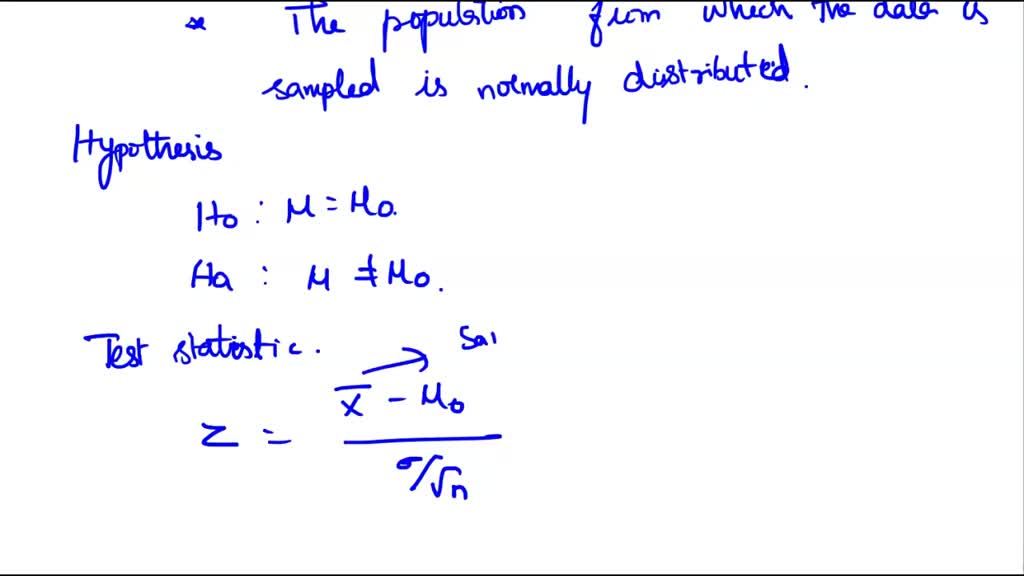 * The population from which the data is
sampled is normally distributed.
Hypothesis
Ho : μ = μo.
Ha : μ ≠ μo.
Test statistic.
Sa
z = x̄ - μo
σ/√n